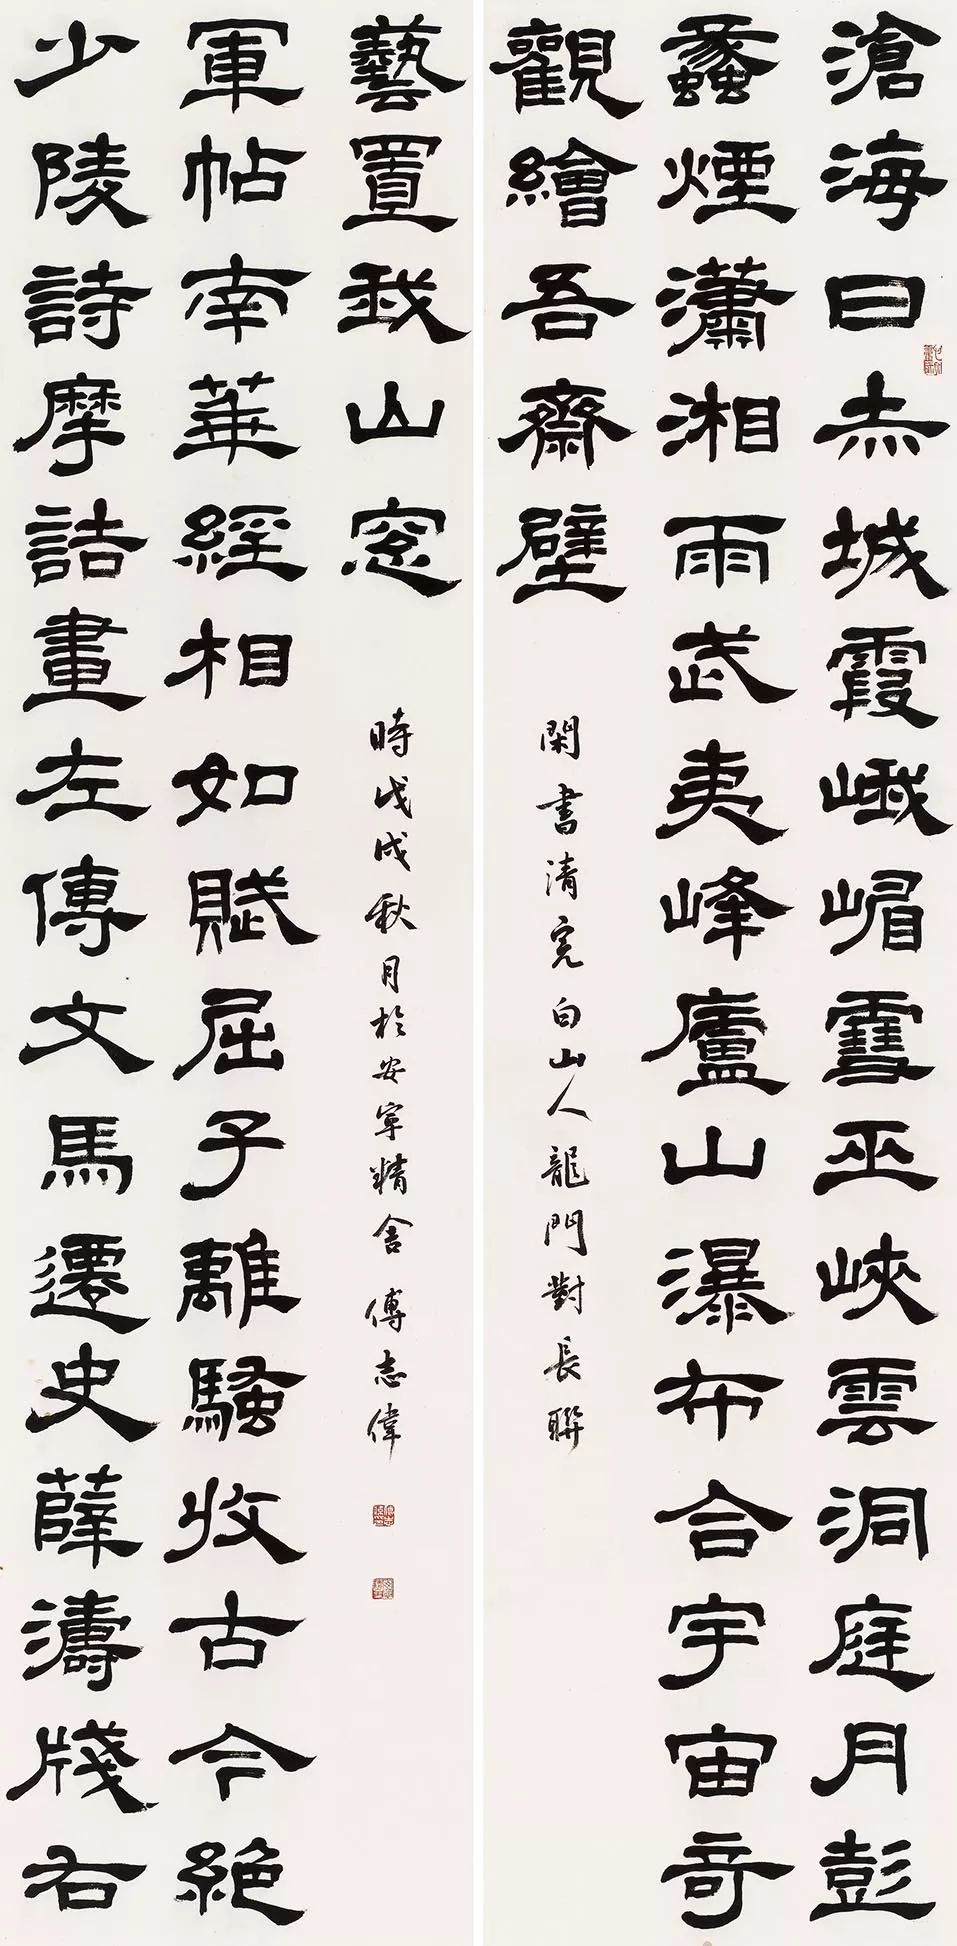 滄海日赤城霞峨嵋雪巫峽雲洞庭月彭
蠡煙瀟湘雨武夷峰廬山瀑布合宇宙奇
觀繪吾齋壁
閑書清完白山人龍門對長聯
少陵詩摩詰畫左傳文馬遷史薛濤牋右
軍帖南華經相如賦屈子離騷收古今絕
藝置我山窓
時戊戌秋月於安寧精舍傅志偉